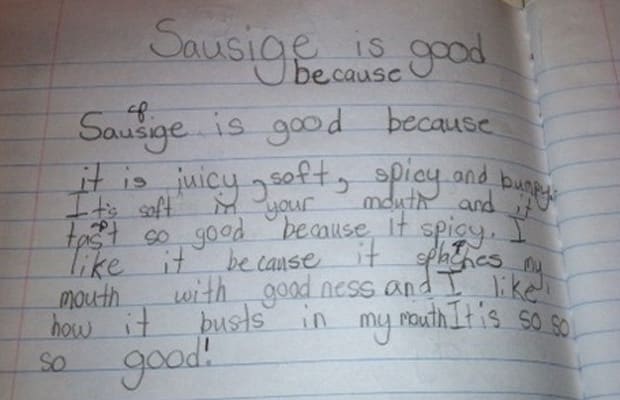 Sausige is good
because
sp
Sausige is good because
it is juicy, soft, spicy and bumpy.
It's soft in your mouth and it
sp
tast so good because it spicy. I
like it because it splaches my
mouth with goodness and I like
how it busts in my mouth It is so so
so good!